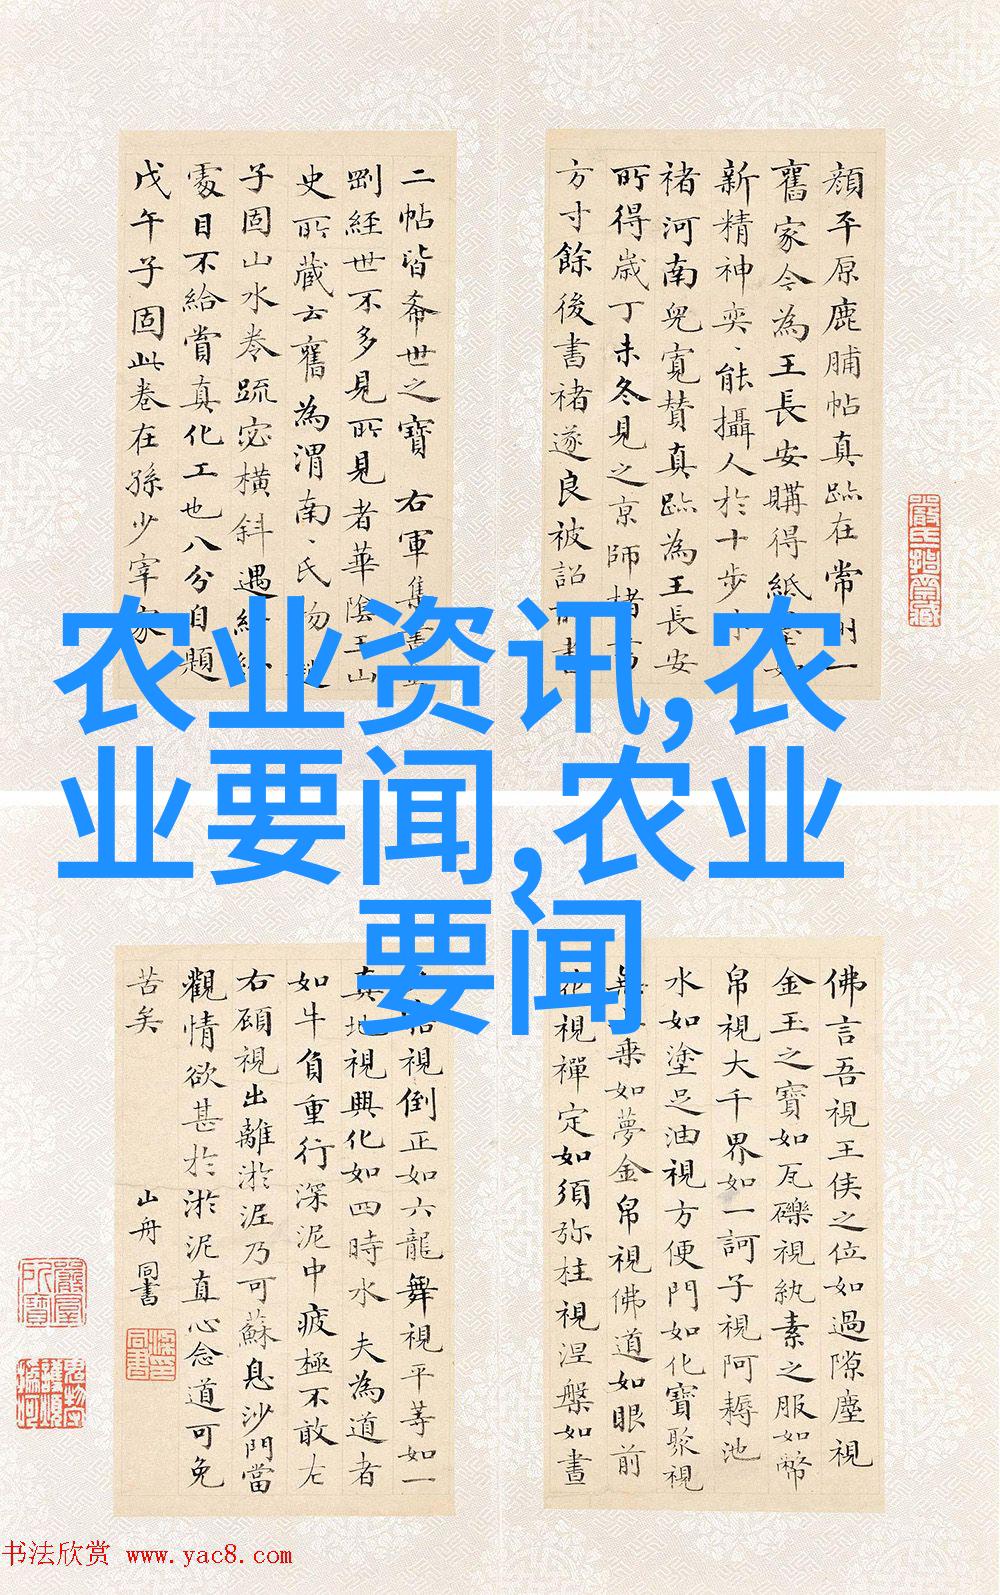 顔平原鹿脯帖真跡在常州一
舊家今為王長安購得紙墨如
新精神奕、能攝人於十步
褚河南兒寛賛真跡為王長安
所得歳丁未冬見之京師楮
方寸餘後書褚遂良被詔
二帖皆希世之寶 右軍集
劚經世不多見所見者華陰王山
史所藏云舊為渭南、氏物
子固山水卷疏宓横斜遇
處目不給賞真化工也八分自題
戊午子固此卷在孫少宰家
農业资讯,农
业要闻,农业
要闻
佛言吾視王侯之位如過隙塵視
金玉之寶如瓦礫視紈素之服如幣
帛視大千界如一訶子視阿耨池
水如塗足油視方便門如化寶聚視
無上乗如夢金帛視佛道如眼前
花視禪定如須弥柱視涅槃如晝
視倒正如六龍舞視平等如一
真地視興化如四時水 夫為道者
如牛負重行深泥中疲極不敢左
右顧視出離淤泥乃可蘇息沙門當
觀情欲甚於淤泥直心念道可免
苦矣 山舟同書
书法欣赏 www.yac8.com